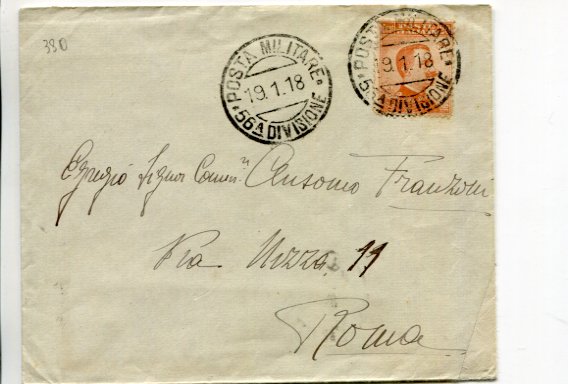 380
POSTA MILITARE
19.1.18
56A DIVISIONE
POSTA MILITARE
19.1.18
56A DIVISIONE
Egregio Signor Comm. Ansomo Franzoni
Via Nizza 11
Roma